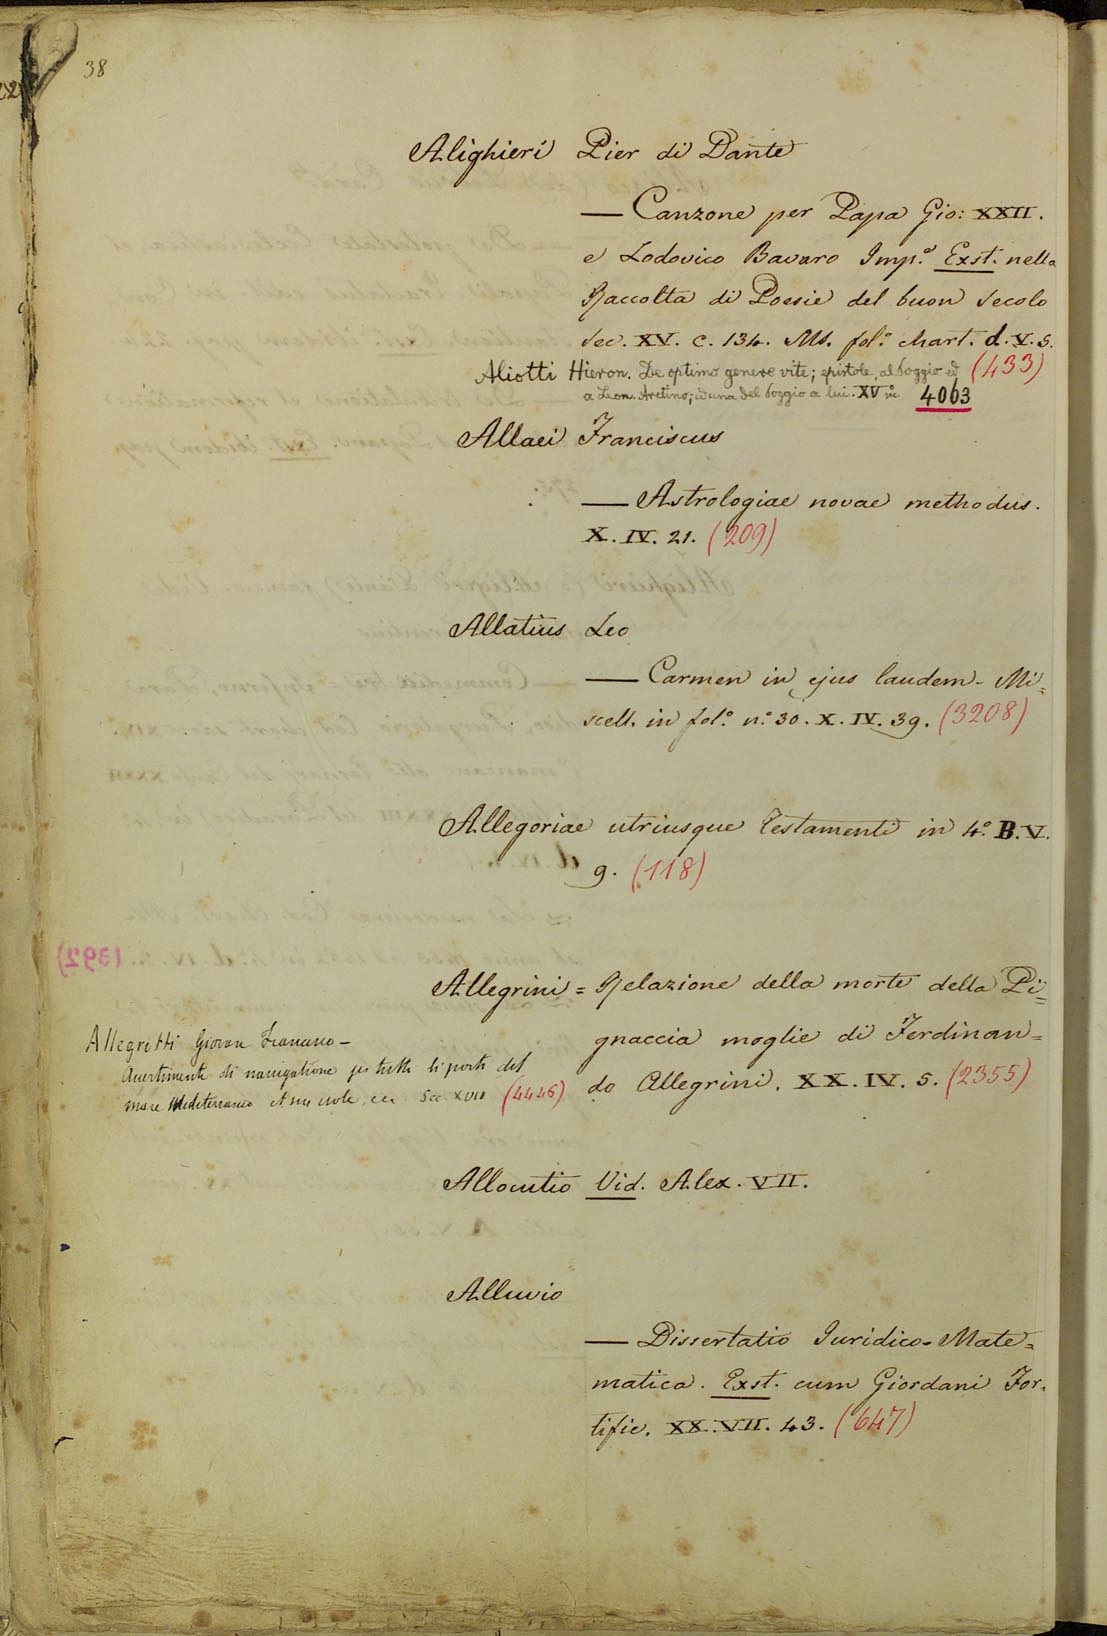 38
Alighieri Pier di Dante
— Canzone per Papa Gio: XXII.
e Lodovico Bavaro Imp.e Exst. nella
Raccolta di Poesie del buon secolo
Sec. XV. c. 134. Ms. fol.o chart. d. V. 5.
(433)
Aliotti Hieron. De optimo genere vite; epistole, al Poggio ed
a Leon. Aretino; ed una del Poggio a lui. XV in 4063
Allaei Franciscus
— Astrologiae novae methodus.
X. IV. 21. (209)
Allatius Leo
— Carmen in ejus laudem - Mi=
scell. in fol.o n.o 30. X. IV. 39. (3208)
Allegoriae utriusque Testamenti in 4.o B. V.
9. (118)
Allegrini = Relazione della morte della Pi=
gnaccia moglie di Ferdinan=
do Allegrini. XX. IV. 5. (2355)
Allegretti Giovan Francesco -
Avertimenti di navigatione per tutti li porti del
mare Mediterraneo et sue isole, Sec XVII (4446)
Allocutio Vid. Alex. VII.
Alluvio
— Dissertatio Iuridico-Mate=
matica. Exst. cum Giordani For=
tific. XX. VII. 43. (647)